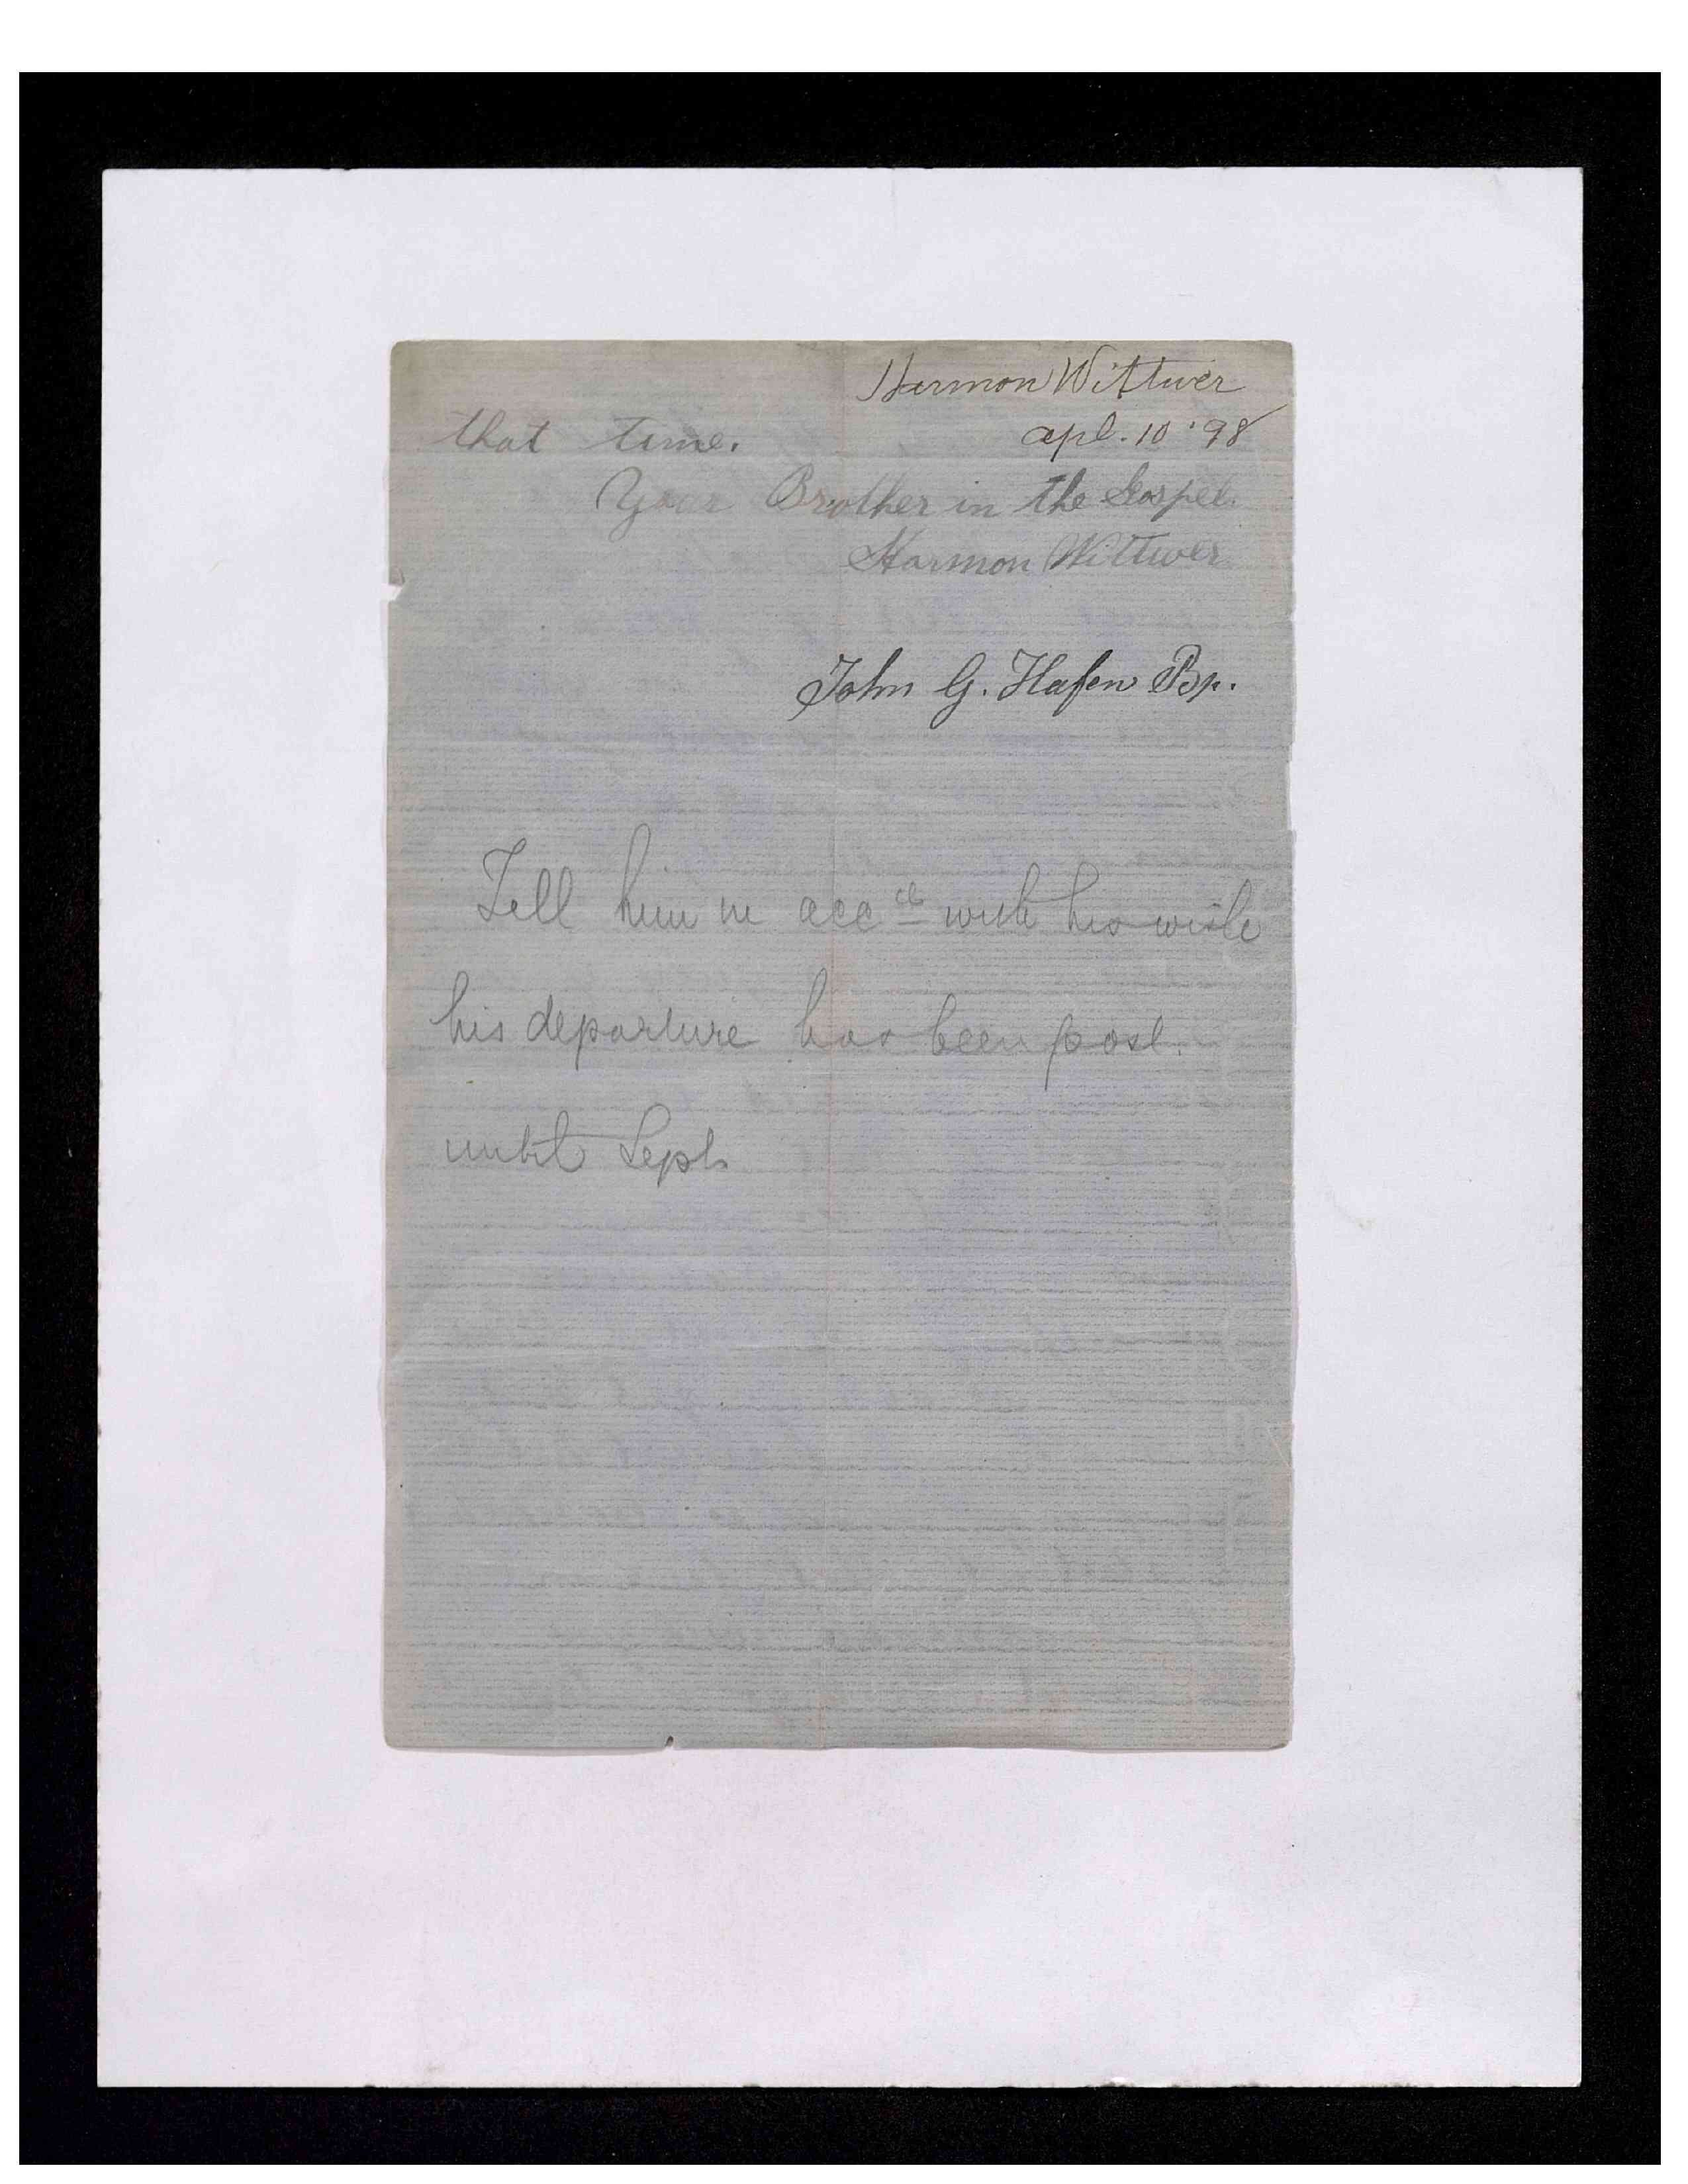 Harmon Wittwer
apl. 10 '98
that time.
Your Brother in the Gospel.
Harmon Wittwer
John G. Hafen Bp.
Tell him in acc ce with his wish
his departure has been post.
until Sept.